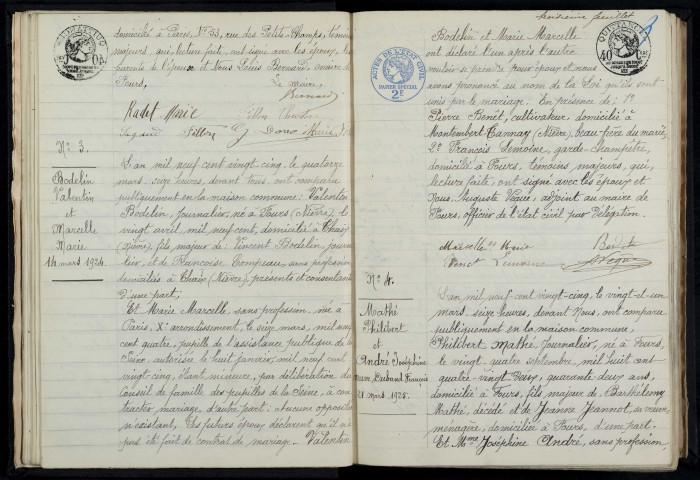 domicilié à Paris, N° 33, rue des Petits-Champs, témoins
majeurs, qui, lecture faite, ont signé avec les époux, les
parents de l'époux et Nous Louis Bernard, maire de
Fours.
Le maire,
Bernard
N° 3.
Bodelin
Valentin
et
Marcelle
Marie
14 mars 1924.
L'an mil neuf cent vingt cinq, le quatorze
mars, seize heures, devant Nous, ont comparu
publiquement en la maison commune: Valentin
Bodelin, journalier, né à Fours (Nièvre), le
vingt avril, mil neuf cent, domicilié à Thaix
(Nièvre), fils majeur de: Vincent Bodelin, journa-
lier, et de Françoise, sans profession
domiciliés à Thaix (Nièvre), présents et consentants
d'une part;
Et Marie Marcelle, sans profession, née à
Paris, X° arrondissement, le seize mars, mil neuf
cent quatre, pupille de l'assistance publique de la
Seine, autorisée le huit janvier, mil neuf cent
vingt cinq, étant mineure, par délibération du
Conseil de famille des pupilles de la Seine, à con-
tracter mariage, d'autre part; aucune opposition
n'existant. Les futurs époux déclarent qu'il n'a
pas été fait de contrat de mariage. Valentin
feuillet
Bodelin et Marie Marcelle
ont déclaré l'un après l'autre
vouloir se prendre pour époux et nous
avons prononcé au nom de la Loi qu'ils sont
unis par le mariage. En présence de: 1°
Pierre Benoît, cultivateur, domicilié à
Montambert-Tannay (Nièvre), beau-frère du marié,
2° François Lemoine, garde-champêtre,
domicilié à Fours, témoins majeurs, qui,
lecture faite, ont signé avec les époux et
Nous, Auguste, adjoint au maire de
Fours, officier de l'état civil par délégation.
ACTES DE L'ETAT CIVIL
PAPIER SPECIAL
2F
N° 4.
Mathé
Philibert
et
André Joséphine
21 mars 1925.
L'an mil neuf cent vingt-cinq, le vingt-et-un
mars, seize heures, devant Nous, ont comparu
publiquement en la maison commune,
Philibert Mathé, journalier, né à Fours,
le vingt-quatre septembre, mil huit cent
quatre-vingt-deux, quarante-deux ans,
domicilié à Fours, fils majeur de Barthélemy
Mathé, décédé et de Jeanne Jeannot, sa veuve,
ménagère, domiciliée à Fours, d'une part.
Et Mme Joséphine André, sans profession,